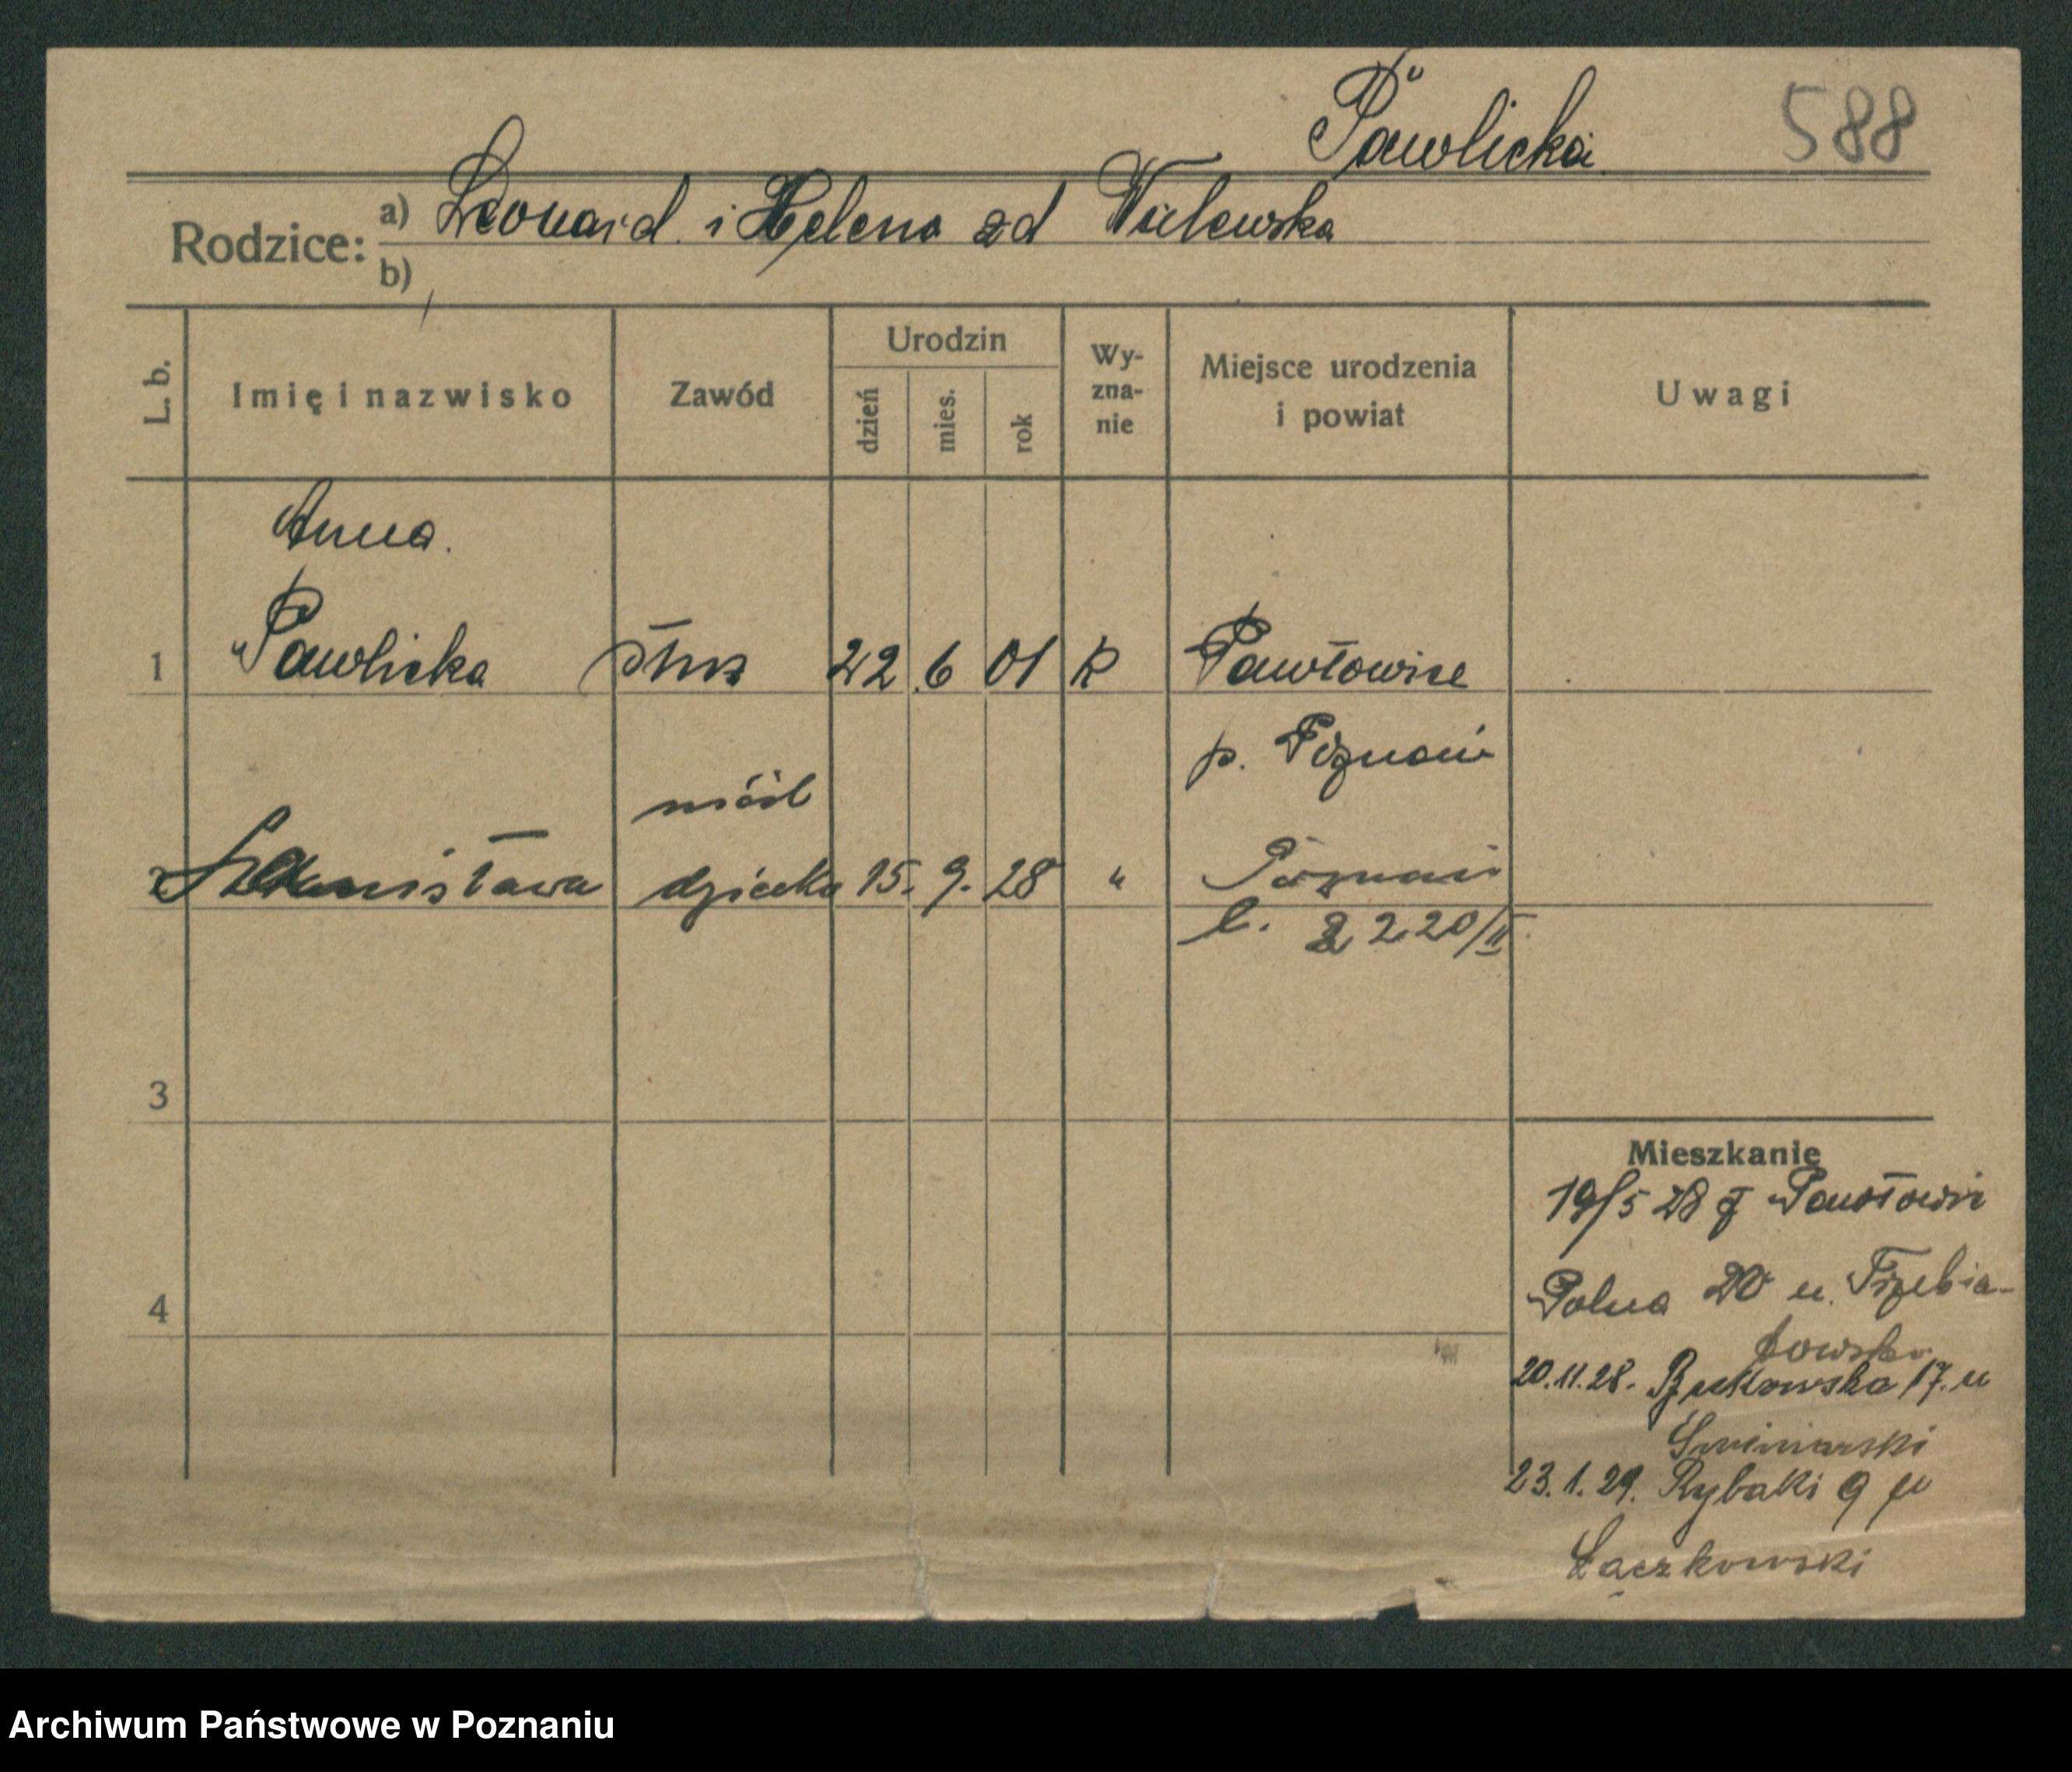 Pawlicka 588
Rodzice: a) Leonard i Helena zd Wulewska
b)
L. b. Imię i nazwisko Zawód Urodzin dzień mies. rok Wy-zna-nie Miejsce urodzenia i powiat Uwagi
Anna.
1 Pawlicka służ 22 6 01 R Pawłowice
p. Poznań
nieśl
2 Stanisława dziecko 15. 9. 28 " Poznań
l. 2220/II
3
Mieszkanie
19/5 28 z Pawłowic
4 Polna 20 u. Trzebia-
towska
20.11.28. Bukowska 17. u
Świniarski
23.1.29. Rybaki 9 u
Łączkowski
Archiwum Państwowe w Poznaniu